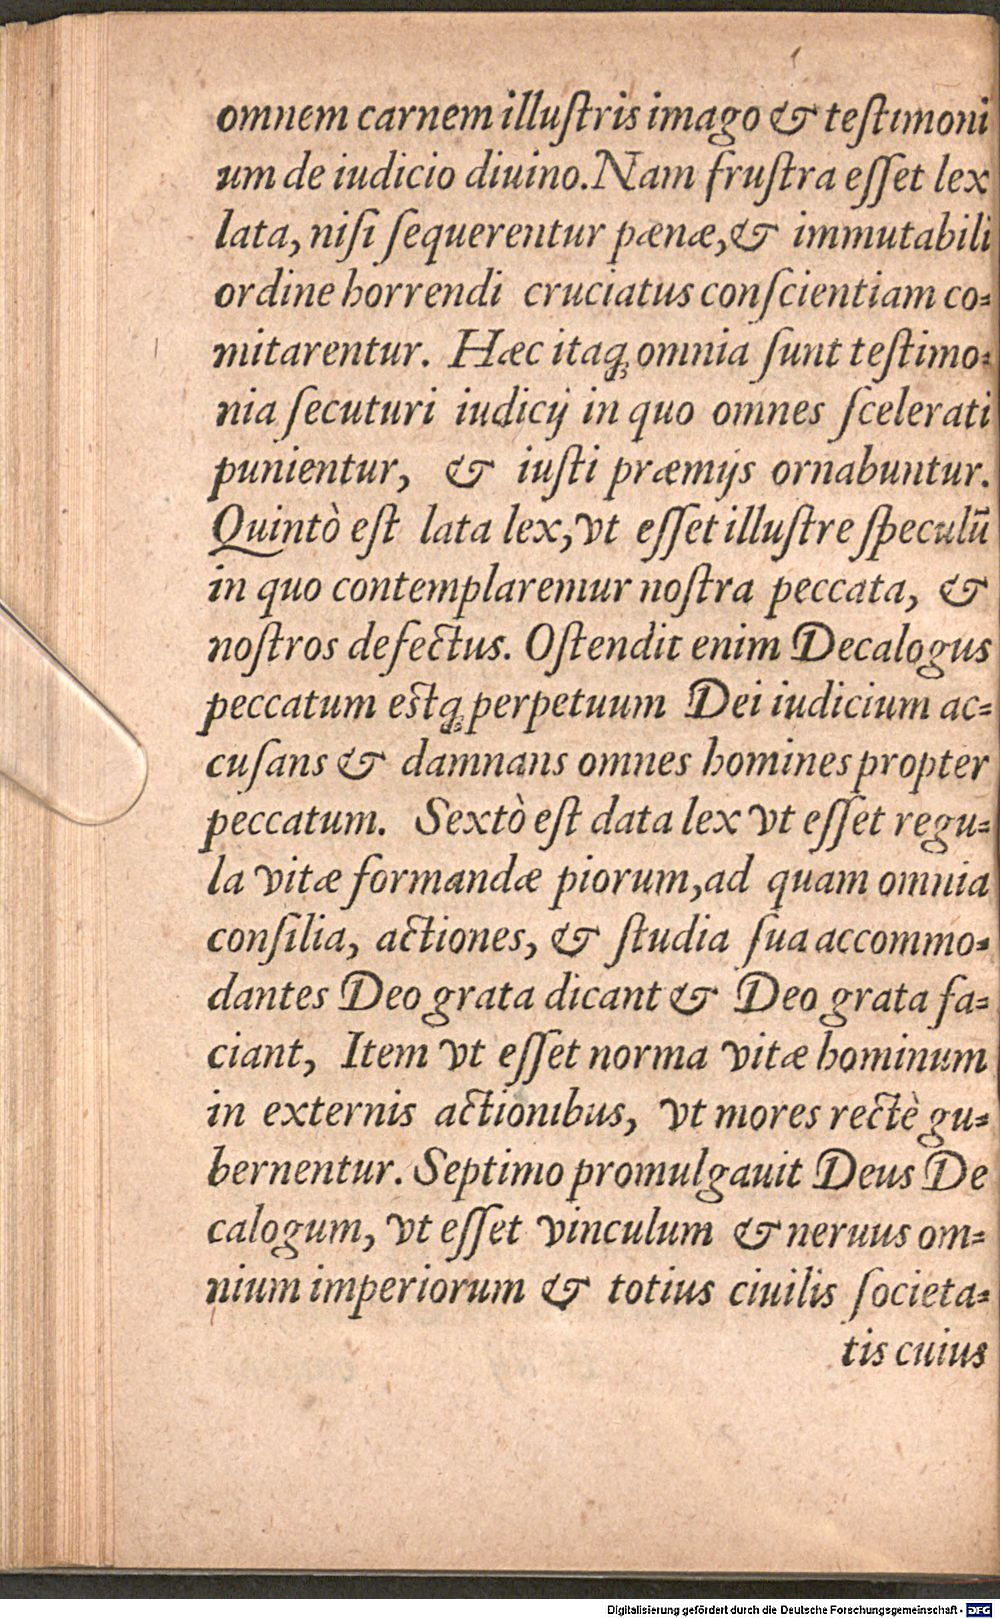 omnem carnem illuſtris imago & teſtimoni
um de iudicio diuino. Nam fruſtra eſſet lex
lata, niſi ſequerentur pænæ, & immutabili
ordine horrendi cruciatus conſcientiam co-
mitarentur. Hæc itaq́ꝫ omnia ſunt teſtimo-
nia ſecuturi iudicij in quo omnes ſcelerati
punientur, & iuſti præmijs ornabuntur.
Quintò eſt lata lex, vt eſſet illuſtre ſpeculū
in quo contemplaremur noſtra peccata, &
noſtros defectus. Oſtendit enim Decalogus
peccatum eſtq́ꝫ perpetuum Dei iudicium ac-
cuſans & damnans omnes homines propter
peccatum. Sextò eſt data lex vt eſſet regu-
la vitæ formandæ piorum, ad quam omnia
conſilia, actiones, & ſtudia ſua accommo-
dantes Deo grata dicant & Deo grata fa-
ciant, Item vt eſſet norma vitæ hominum
in externis actionibus, vt mores rectè gu-
bernentur. Septimo promulgauit Deus De
calogum, vt eſſet vinculum & neruus om-
nium imperiorum & totius ciuilis ſocieta-
tis cuius
Digitalisierung gefördert durch die Deutsche Forschungsgemeinschaft - DFG